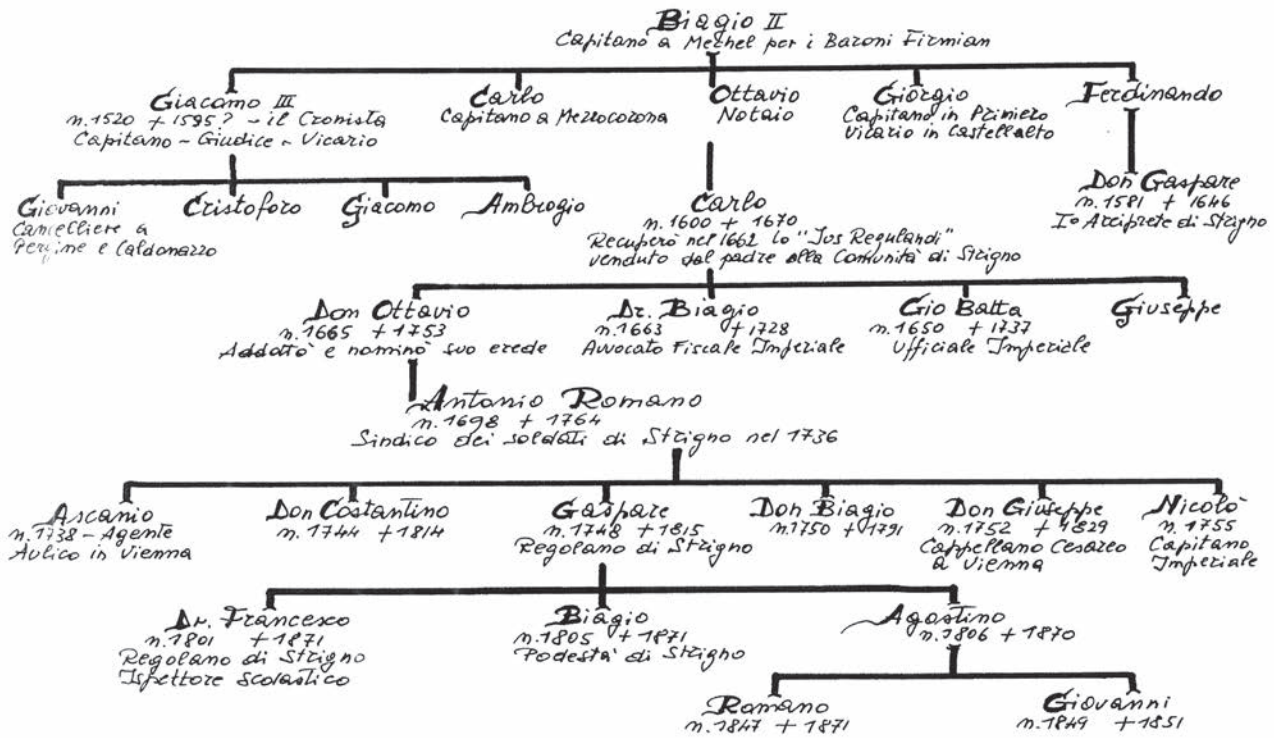 Biagio II
Capitano a Mechel per i Baroni Firmian
Giacomo III
n.1520 + 1595? - il Cronista
Capitano - Giudice - Vicario
Carlo
Capitano a Mezzocorona
Ottavio
Notaio
Giorgio
Capitano in Primiero
Vicario in Castellalto
Ferdinando
Giovanni
Cancelliere a
Pergine e Caldonazzo
Cristoforo
Giacomo
Ambrogio
Carlo
n.1600 + 1670
Recuperò nel 1662 lo "Jus Regulandi"
venduto dal padre alla Comunità di Strigno
Don Gaspare
n.1581 + 1646
Io Arciprete di Strigno
Don Ottavio
n.1665 + 1753
Addottò e nominò suo erede
Dr. Biagio
n.1663 +1728
Avvocato Fiscale Imperiale
Gio Batta
n.1650 +1737
Ufficiale Imperiale
Giuseppe
Antonio Romano
n.1698 + 1764
Sindico dei soldati di Strigno nel 1736
Ascanio
n.1738 - Agente
Aulico in Vienna
Don Costantino
n.1744 +1814
Gaspare
n.1748 +1815
Regolano di Strigno
Don Biagio
n.1750 +1791
Don Giuseppe
n.1752 +1829
Cappellano Cesareo
a Vienna
Nicolò
n.1755
Capitano
Imperiale
Dr. Francesco
n.1801 +1871
Regolano di Strigno
Ispettore Scolastico
Biagio
n.1805 +1871
Podestà di Strigno
Agostino
n.1806 +1870
Romano
n.1847 +1871
Giovanni
n.1849 +1851